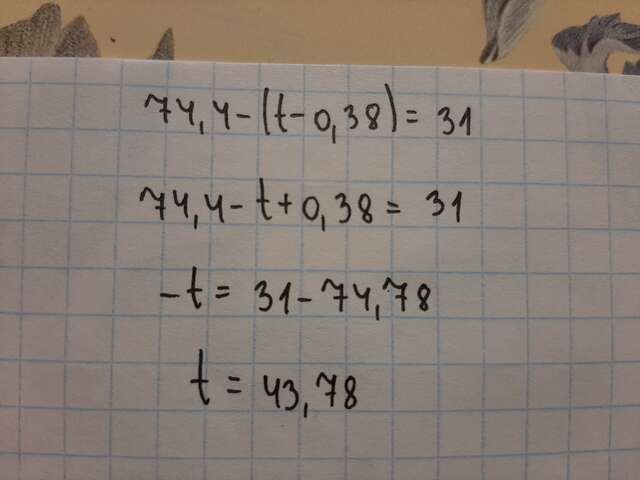 74,4-(t-0,38)= 31
74,4-t+0,38= 31
-t= 31-74,78
t= 43,78